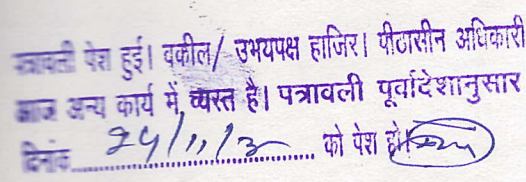 पत्रावली पेश हुई। वकील/ उभयपक्ष हाजिर। पीठासीन अधिकारी
आज अन्य कार्य में व्यस्त है। पत्रावली पूर्वादेशानुसार
दिनांक 24/11/2 को पेश हो।